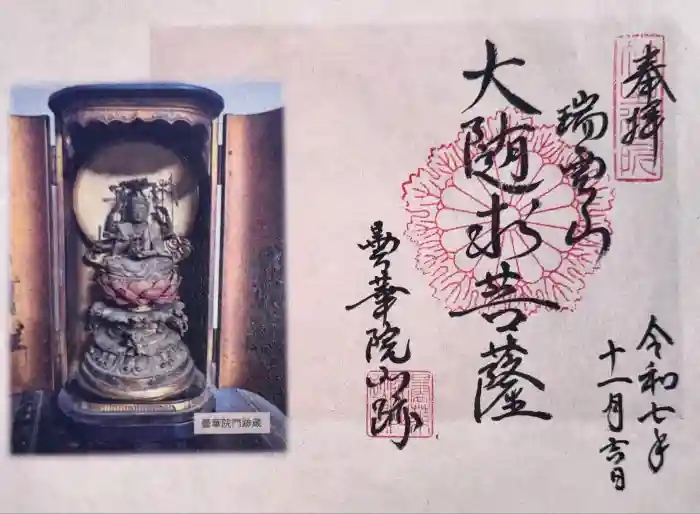 奉拝
瑞雲山
大随求菩薩
曇華院山跡
令和七年
十一月六日
曇華院門跡蔵